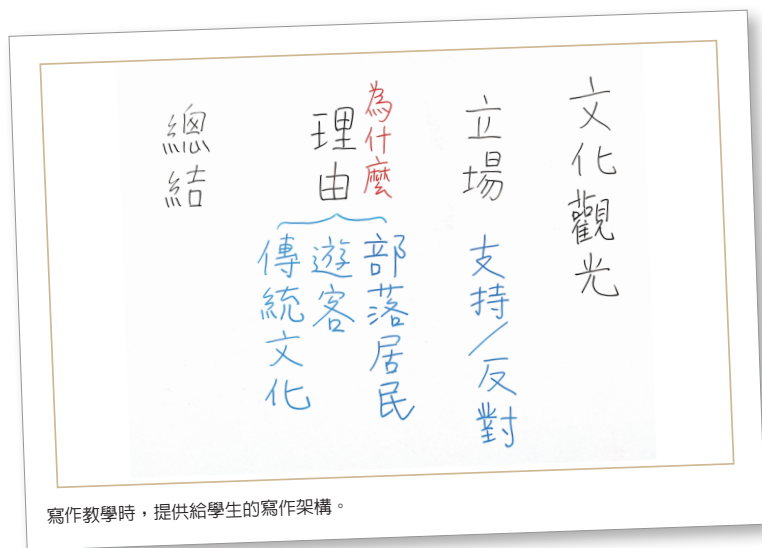 文化觀光
立場 支持/反對
為什麼
理由
部落居民
遊客
傳統文化
總結
寫作教學時,提供給學生的寫作架構。